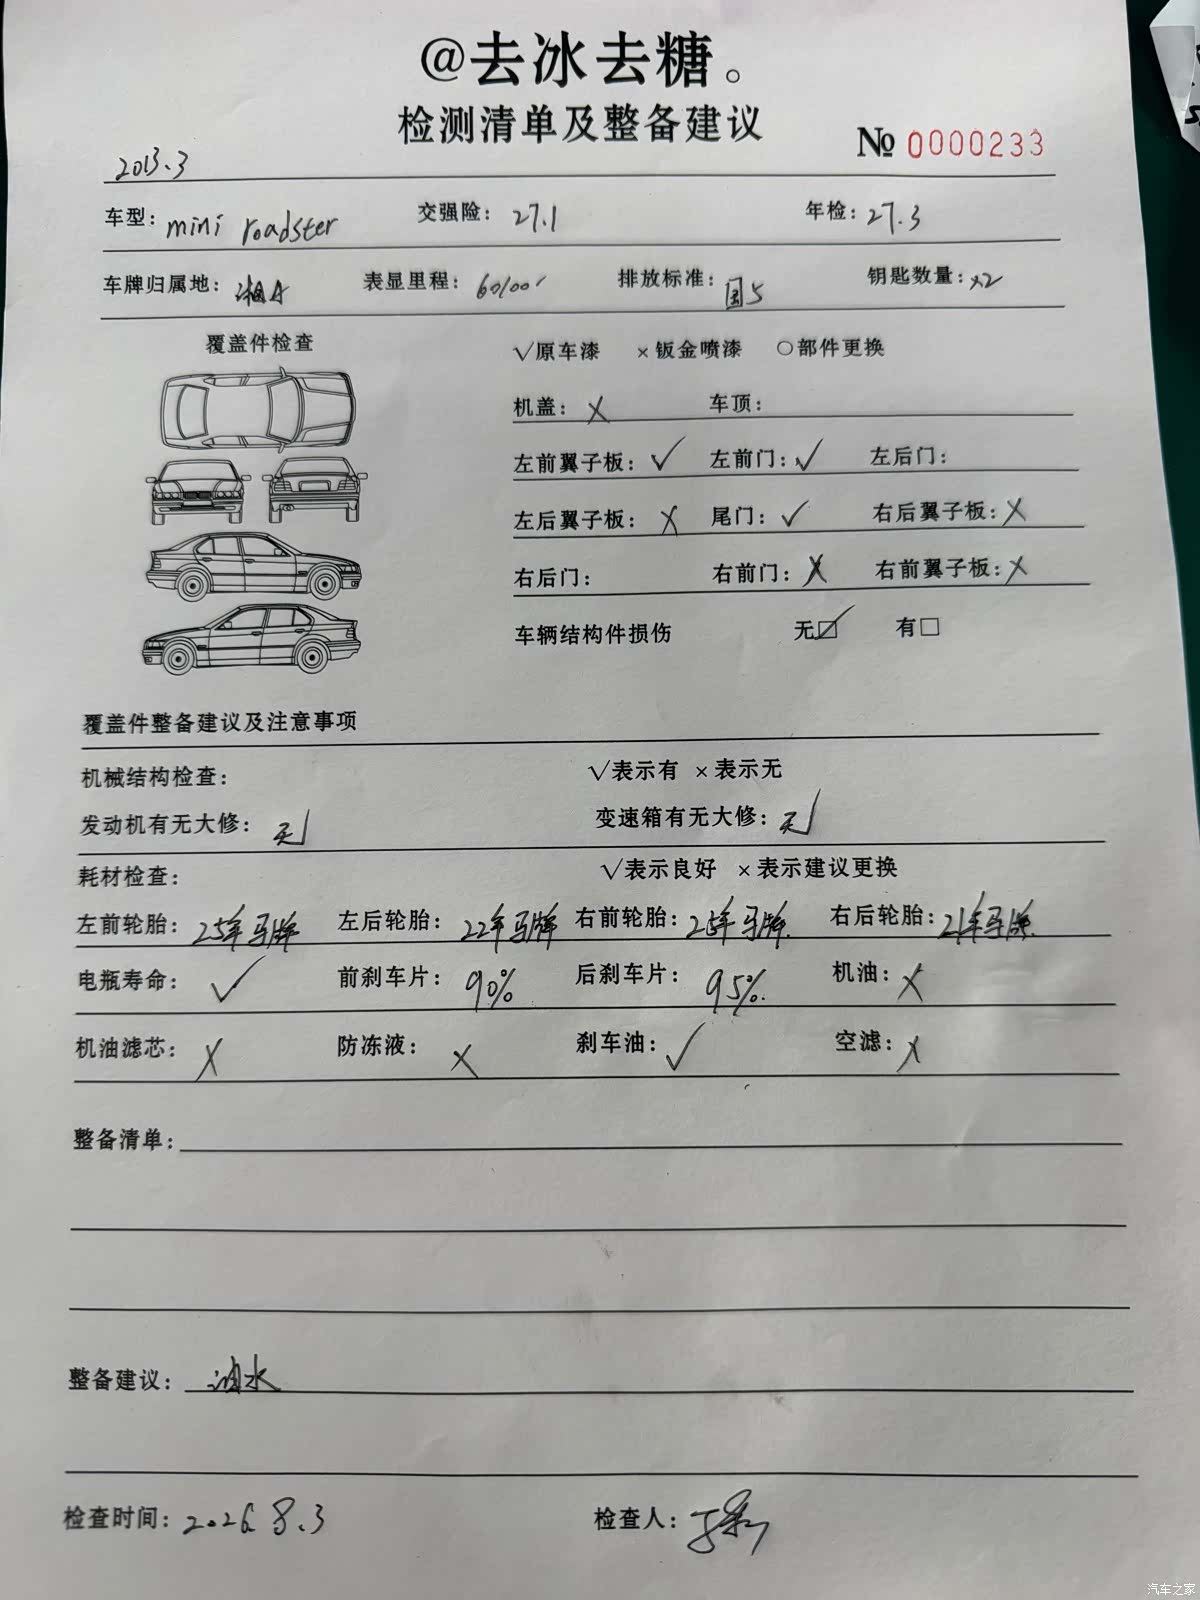 @去冰去糖。
检测清单及整备建议
№ 0000233
2013.3
车型: mini roadster 交强险: 27.1 年检: 27.3
车牌归属地: 湘A 表显里程: 60100 排放标准: 国5 钥匙数量: x2
覆盖件检查 √原车漆 ×钣金喷漆 ○部件更换
机盖: × 车顶:
左前翼子板: √ 左前门: √ 左后门:
左后翼子板: × 尾门: √ 右后翼子板: ×
右后门: 右前门: × 右前翼子板: ×
车辆结构件损伤 无☑ 有□
覆盖件整备建议及注意事项
机械结构检查: √表示有 ×表示无
发动机有无大修: 无 变速箱有无大修: 无
耗材检查: √表示良好 ×表示建议更换
左前轮胎: 25年马牌 左后轮胎: 22年马牌 右前轮胎: 25年马牌 右后轮胎: 21年马牌
电瓶寿命: √ 前刹车片: 90% 后刹车片: 95% 机油: ×
机油滤芯: × 防冻液: × 刹车油: √ 空滤: ×
整备清单:
整备建议: 油水
检查时间: 2026.8.3 检查人:
汽车之家